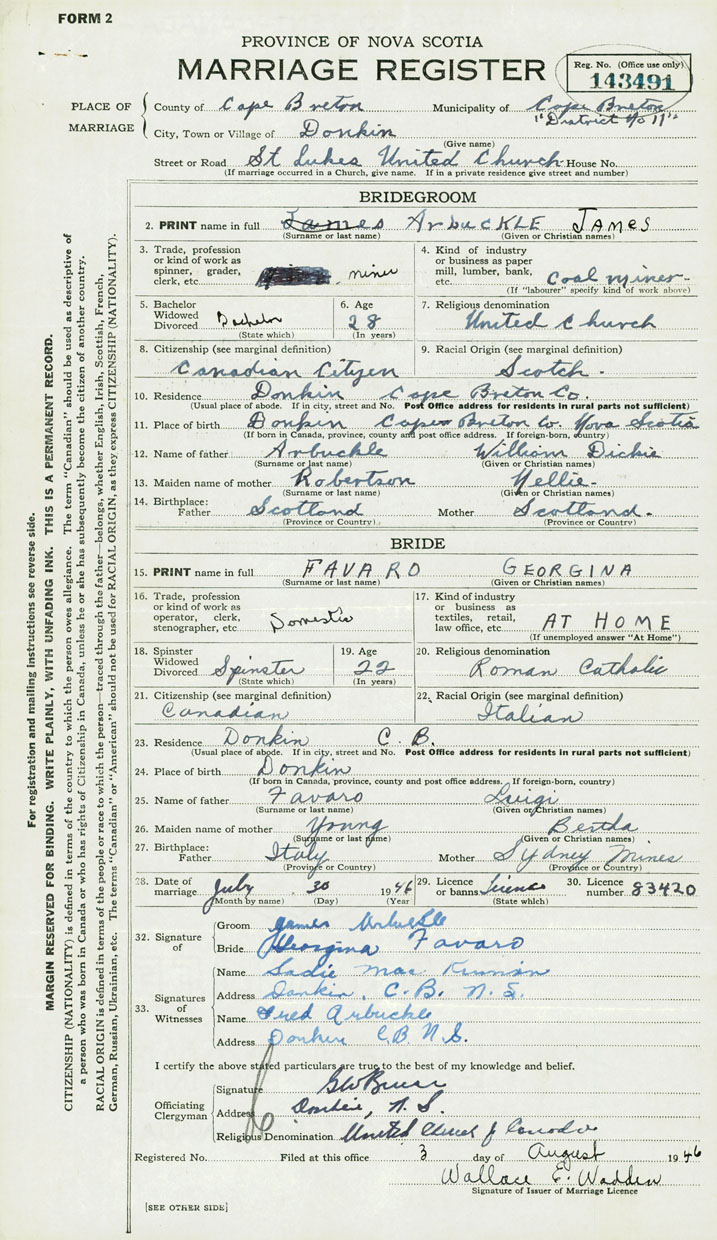 FORM 2
PROVINCE OF NOVA SCOTIA
MARRIAGE REGISTER
Reg. No. (Office use only)
143491
PLACE OF MARRIAGE
County of Cape Breton Municipality of Cape Breton
"District No 11"
City, Town or Village of Donkin
(Give name)
Street or Road St Lukes United Church House No.
(If marriage occurred in a Church, give name. If in a private residence give street and number)
BRIDEGROOM
2. PRINT name in full James ArbuckLE JAMES
(Surname or last name) (Given or Christian names)
3. Trade, profession or kind of work as spinner, grader, clerk, etc. miner
4. Kind of industry or business as paper mill, lumber, bank, etc. Coal miner
(If "labourer" specify kind of work above)
5. Bachelor Widowed Divorced Bachelor
(State which)
6. Age 28
(In years)
7. Religious denomination United Church
8. Citizenship (see marginal definition) Canadian Citizen
9. Racial Origin (see marginal definition) Scotch.
10. Residence Donkin Cape Breton Co.
(Usual place of abode. If in city, street and No. Post Office address for residents in rural parts not sufficient)
11. Place of birth Donkin Cape Breton Co. Nova Scotia
(If born in Canada, province, county and post office address. If foreign-born, country)
12. Name of father Arbuckle William Dickie
(Surname or last name) (Given or Christian names)
13. Maiden name of mother Robertson Nellie.
(Surname or last name) (Given or Christian names)
14. Birthplace: Father Scotland Mother Scotland.
(Province or Country) (Province or Country)
BRIDE
15. PRINT name in full FAVARO GEORGINA
(Surname or last name) (Given or Christian names)
16. Trade, profession or kind of work as operator, clerk, stenographer, etc. Domestic
17. Kind of industry or business as textiles, retail, law office, etc. AT HOME
(If unemployed answer "At Home")
18. Spinster Widowed Divorced Spinster
(State which)
19. Age 22
(In years)
20. Religious denomination Roman Catholic
21. Citizenship (see marginal definition) Canadian
22. Racial Origin (see marginal definition) Italian
23. Residence Donkin C. B.
(Usual place of abode. If in city, street and No. Post Office address for residents in rural parts not sufficient)
24. Place of birth Donkin
(If born in Canada, province, county and post office address. If foreign-born, country)
25. Name of father Favaro Luigi
(Surname or last name) (Given or Christian names)
26. Maiden name of mother Young Bertha
(Surname or last name) (Given or Christian names)
27. Birthplace: Father Italy Mother Sydney Mines
(Province or Country) (Province or Country)
28. Date of marriage July 30 1946
(Month by name) (Day) (Year)
29. Licence or banns License
(State which)
30. Licence number 83420
32. Signature of
Groom James Arbuckle
Bride Georgina Favaro
33. Signatures of Witnesses
Name Sadie Mac Kinnon
Address Donkin, C.B. N.S.
Name Fred Arbuckle
Address Donkin C.B N.S.
I certify the above stated particulars are true to the best of my knowledge and belief.
Officiating Clergyman
Signature
Address Donkin, N.S.
Religious Denomination United Church of Canada
Registered No. Filed at this office 3 day of August 1946
Wallace E. Wadden
Signature of Issuer of Marriage Licence
[SEE OTHER SIDE]
For registration and mailing instructions see reverse side.
MARGIN RESERVED FOR BINDING. WRITE PLAINLY, WITH UNFADING INK. THIS IS A PERMANENT RECORD.
CITIZENSHIP (NATIONALITY) is defined in terms of the country to which the person owes allegiance. The term "Canadian" should be used as descriptive of
a person who was born in Canada or who has rights of Citizenship in Canada, unless he or she has subsequently become the citizen of another country.
RACIAL ORIGIN is defined in terms of the people or race to which the person—traced through the father—belongs, whether English, Irish, Scottish, French,
German, Russian, Ukrainian, etc. The terms "Canadian" or "American" should not be used for RACIAL ORIGIN, as they express CITIZENSHIP (NATIONALITY).